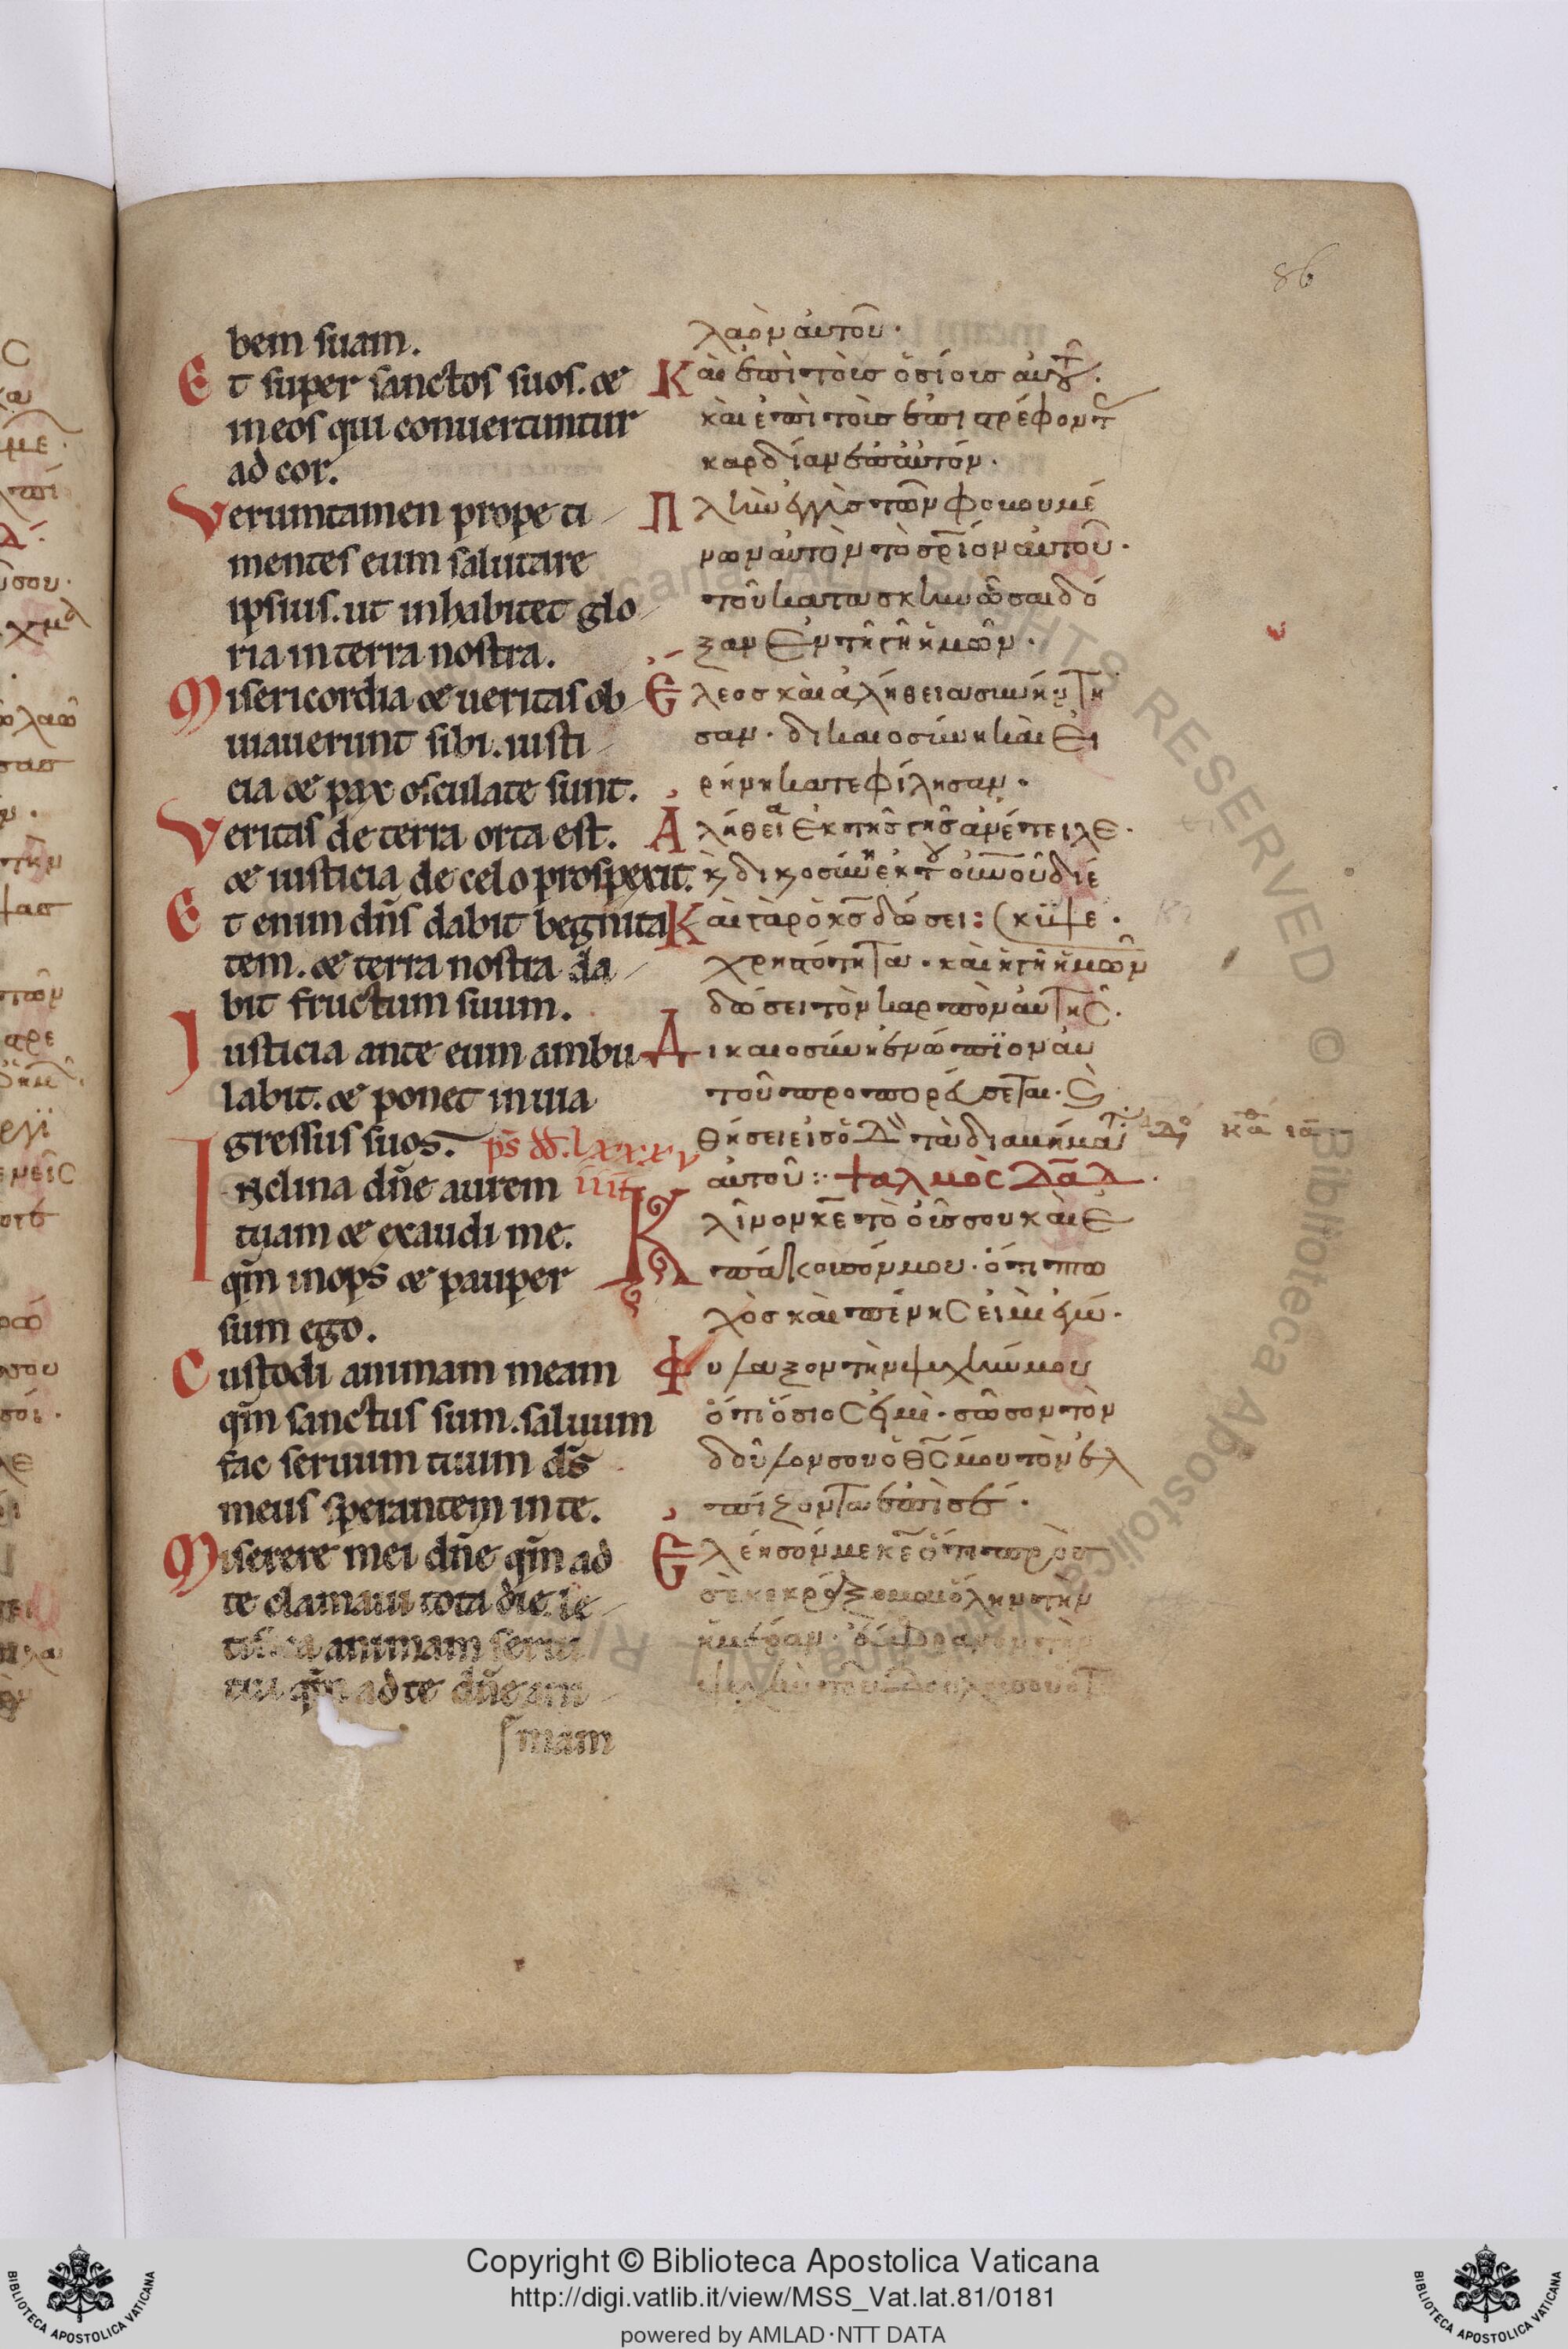 86
bem suam.
Et super sanctos suos. &
in eos qui conuertuntur
ad cor.
Veruntamen prope ti
mentes eum salutare
ipsius. ut inhabitet glo
ria in terra nostra.
Misericordia & ueritas ob
uiauerunt sibi. iusti
cia & pax osculate sunt.
Veritas de terra orta est.
& iusticia de celo prospexit.
Et enim dn̄s dabit begnita
tem. & terra nostra da
bit fructum suum.
Iusticia ante eum ambu
labit. & ponet in uia
gressus suos. ps̄ dd. lxxxv
Inclina dn̄e aurem iiii
tuam & exaudi me.
qm̄ inops & pauper
sum ego.
Custodi animam meam
qm̄ sanctus sum. saluum
fac seruum tuum ds̄
meus sperantem in te.
Miserere mei dn̄e qm̄ ad
te clamaui tota die. le
animam serui
tui qm̄ ad te dn̄e ani
mam
λαὸν ἀυτοῦ.
Κὰι ἐπὶ τὸισ ὁσίοισ αὐτοῦ.
κὰι ἐπὶ τοὶσ ἐπιστρέφοντ
καρδίαν ἐπ ἀυτόν.
Πλὴν ἐγγὺσ τῶν φοβουμέ
νων ἀυτὸν τὸ σρ̄ίον ἀυτοῦ.
τοῦ κατασκηνῶσαι δό
ξαν ἐν τῆ γῆ ἡμῶν.
Ἔλεοσ κὰι ἀλήθεια συνήντη
σαν. δικαιοσύνη κὰι εἰ
ρήνη κατεφίλησαν.
Ἀλήθεια ἐκ τῆσ γῆσ ἀνέτειλε.
κ̀ δικαιοσύνη ἐκ τοῦ οὐν̄οῦ διέ
Κὰι γὰρ ὁ κσ̄ δώσει: (κυψε.
χρηστότητα. κὰι ἡ γῆ ἡμῶν
δώσει τὸν καρπὸν ἀυτῆς.
Δικαιοσύνη ἐνώπϊον ἀυ
τοῦ προπορέυσεται. κ̀
θήσει εἰσ ὁδὸν τὰ διαβήματα
ἀυτοῦ: ψαλμὸς δᾱδ.
Κλῖνον κε̄ τὸ οὖσ σου κὰι ἐ
πάκουσόν μου. ὅτι πτω
χὸσ κὰι πένης εἰμὶ ἐγώ.
Φύλαξον τὴν ψυχήν μου
ὅτι ὅσιος ἐιμὶ. σῶσον τὸν
δοῦλον σου ὁ θς̄ μου τὸν ἐλ
πίζοντα ἐπὶ σέ.
Ἐλέησόν με κε̄ ὅτι πρὸσ
σὲ κεκράξομαι ὅλην τὴν
ἡμέραν. ἐυφρανον τὴν
ψυχὴν τοῦ δούλου σου ὅτ
Copyright © Biblioteca Apostolica Vaticana
http://digi.vatlib.it/view/MSS_Vat.lat.81/0181
powered by AMLAD·NTT DATA